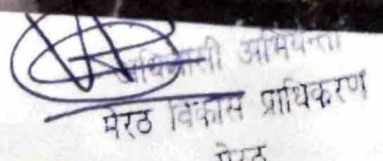 अधिशासी अभियन्ता
मेरठ विकास प्राधिकरण
मेरठ